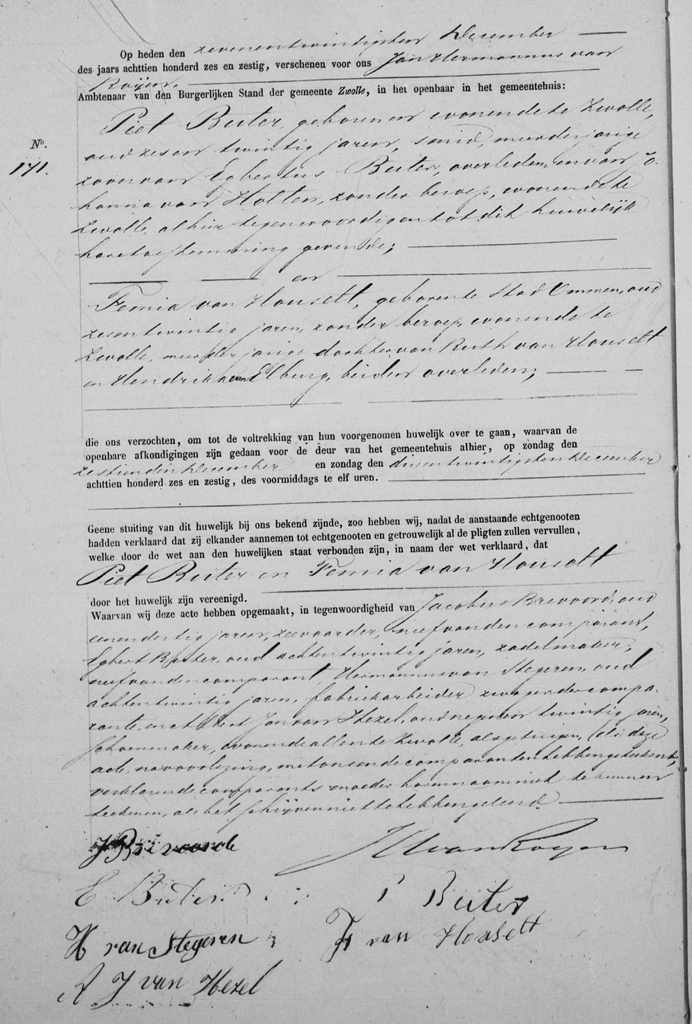 Op heden den zevenentwintigsten December
des jaars achttien honderd zes en zestig, verschenen voor ons Jan Hermannus van
Roijen,
Ambtenaar van den Burgerlijken Stand der gemeente Zwolle, in het openbaar in het gemeentehuis:
No.
171.
Piet Buter, geboren en wonende te Zwolle,
oud zes en twintig jaren, smid, meerderjarige
zoon van Egbertus Buter, overleden, en van Jo-
hanna van Holten, zonder beroep, wonende te
Zwolle, alhier tegenwoordig en tot dit huwelijk
hare toestemming gevende;
en
Femia van Houselt, geboren te Stad Ommen, oud
zes en twintig jaren, zonder beroep, wonende te
Zwolle, meerderjarige dochter van Ruth van Houselt
en Hendrika van Elburg, beiden overleden;
die ons verzochten, om tot de voltrekking van hun voorgenomen huwelijk over te gaan, waarvan de
openbare afkondigingen zijn gedaan voor de deur van het gemeentehuis alhier, op zondag den
zestienden December en zondag den drieentwintigsten December
achttien honderd zes en zestig, des voormiddags te elf uren.
Geene stuiting van dit huwelijk bij ons bekend zijnde, zoo hebben wij, nadat de aanstaande echtgenooten
hadden verklaard dat zij elkander aannemen tot echtgenooten en getrouwelijk al de pligten zullen vervullen,
welke door de wet aan den huwelijken staat verbonden zijn, in naam der wet verklaard, dat
Piet Buter en Femia van Houselt
door het huwelijk zijn vereenigd.
Waarvan wij deze acte hebben opgemaakt, in tegenwoordigheid van Jacobus Brevoord, oud
en dertig jaren, neef van den comparant,
Egbert Buter, oud achtentwintig jaren, zadelmaker,
neef van den comparant, Hermannus van Stegeren, oud
achtentwintig jaren, fabriekarbeider, zwager der compa-
rante, en Albert Jan van Hezel, oud negen en twintig jaren,
schoenmaker, wonende allen te Zwolle, als getuigen, die deze
acte, na voorlezing, met ons en de comparanten hebben geteekend,
verklarende comparants moeder haren naam niet te kunnen
teekenen, als het schrijven niet te hebben geleerd.
J Brevoord
JH van Royen
E Buter
P Buter
H van Stegeren
F van Houselt
A J van Hezel